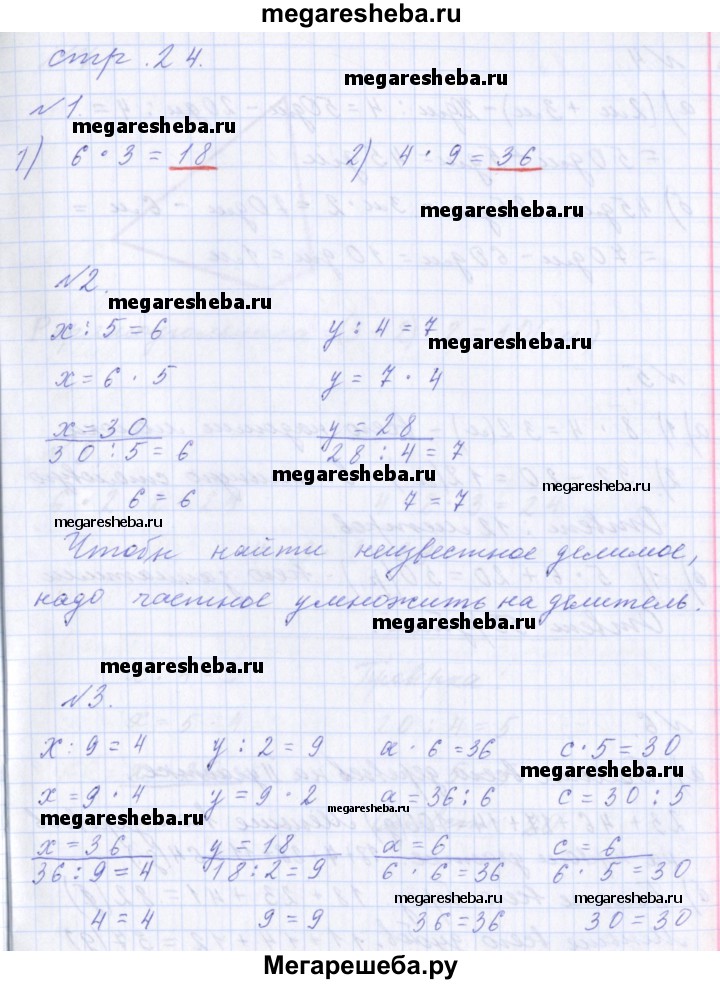 megaresheba.ru
стр. 24.
megaresheba.ru
№1.
megaresheba.ru
1) 6 · 3 = 18 2) 4 · 9 = 36
megaresheba.ru
№2.
megaresheba.ru
x : 5 = 6 y : 4 = 7
megaresheba.ru
x = 6 · 5 y = 7 · 4
x = 30 y = 28
30 : 5 = 6 28 : 4 = 7
megaresheba.ru
megaresheba.ru
6 = 6 7 = 7
megaresheba.ru
Чтобы найти неизвестное делимое,
надо частное умножить на делитель.
megaresheba.ru
megaresheba.ru
№3.
x : 9 = 4 y : 2 = 9 a · 6 = 36 c · 5 = 30
megaresheba.ru
x = 9 · 4 y = 9 · 2 a = 36 : 6 c = 30 : 5
megaresheba.ru megaresheba.ru
x = 36 y = 18 a = 6 c = 6
36 : 9 = 4 18 : 2 = 9 6 · 6 = 36 6 · 5 = 30
megaresheba.ru megaresheba.ru
4 = 4 9 = 9 36 = 36 30 = 30
Мегарешеба.ру